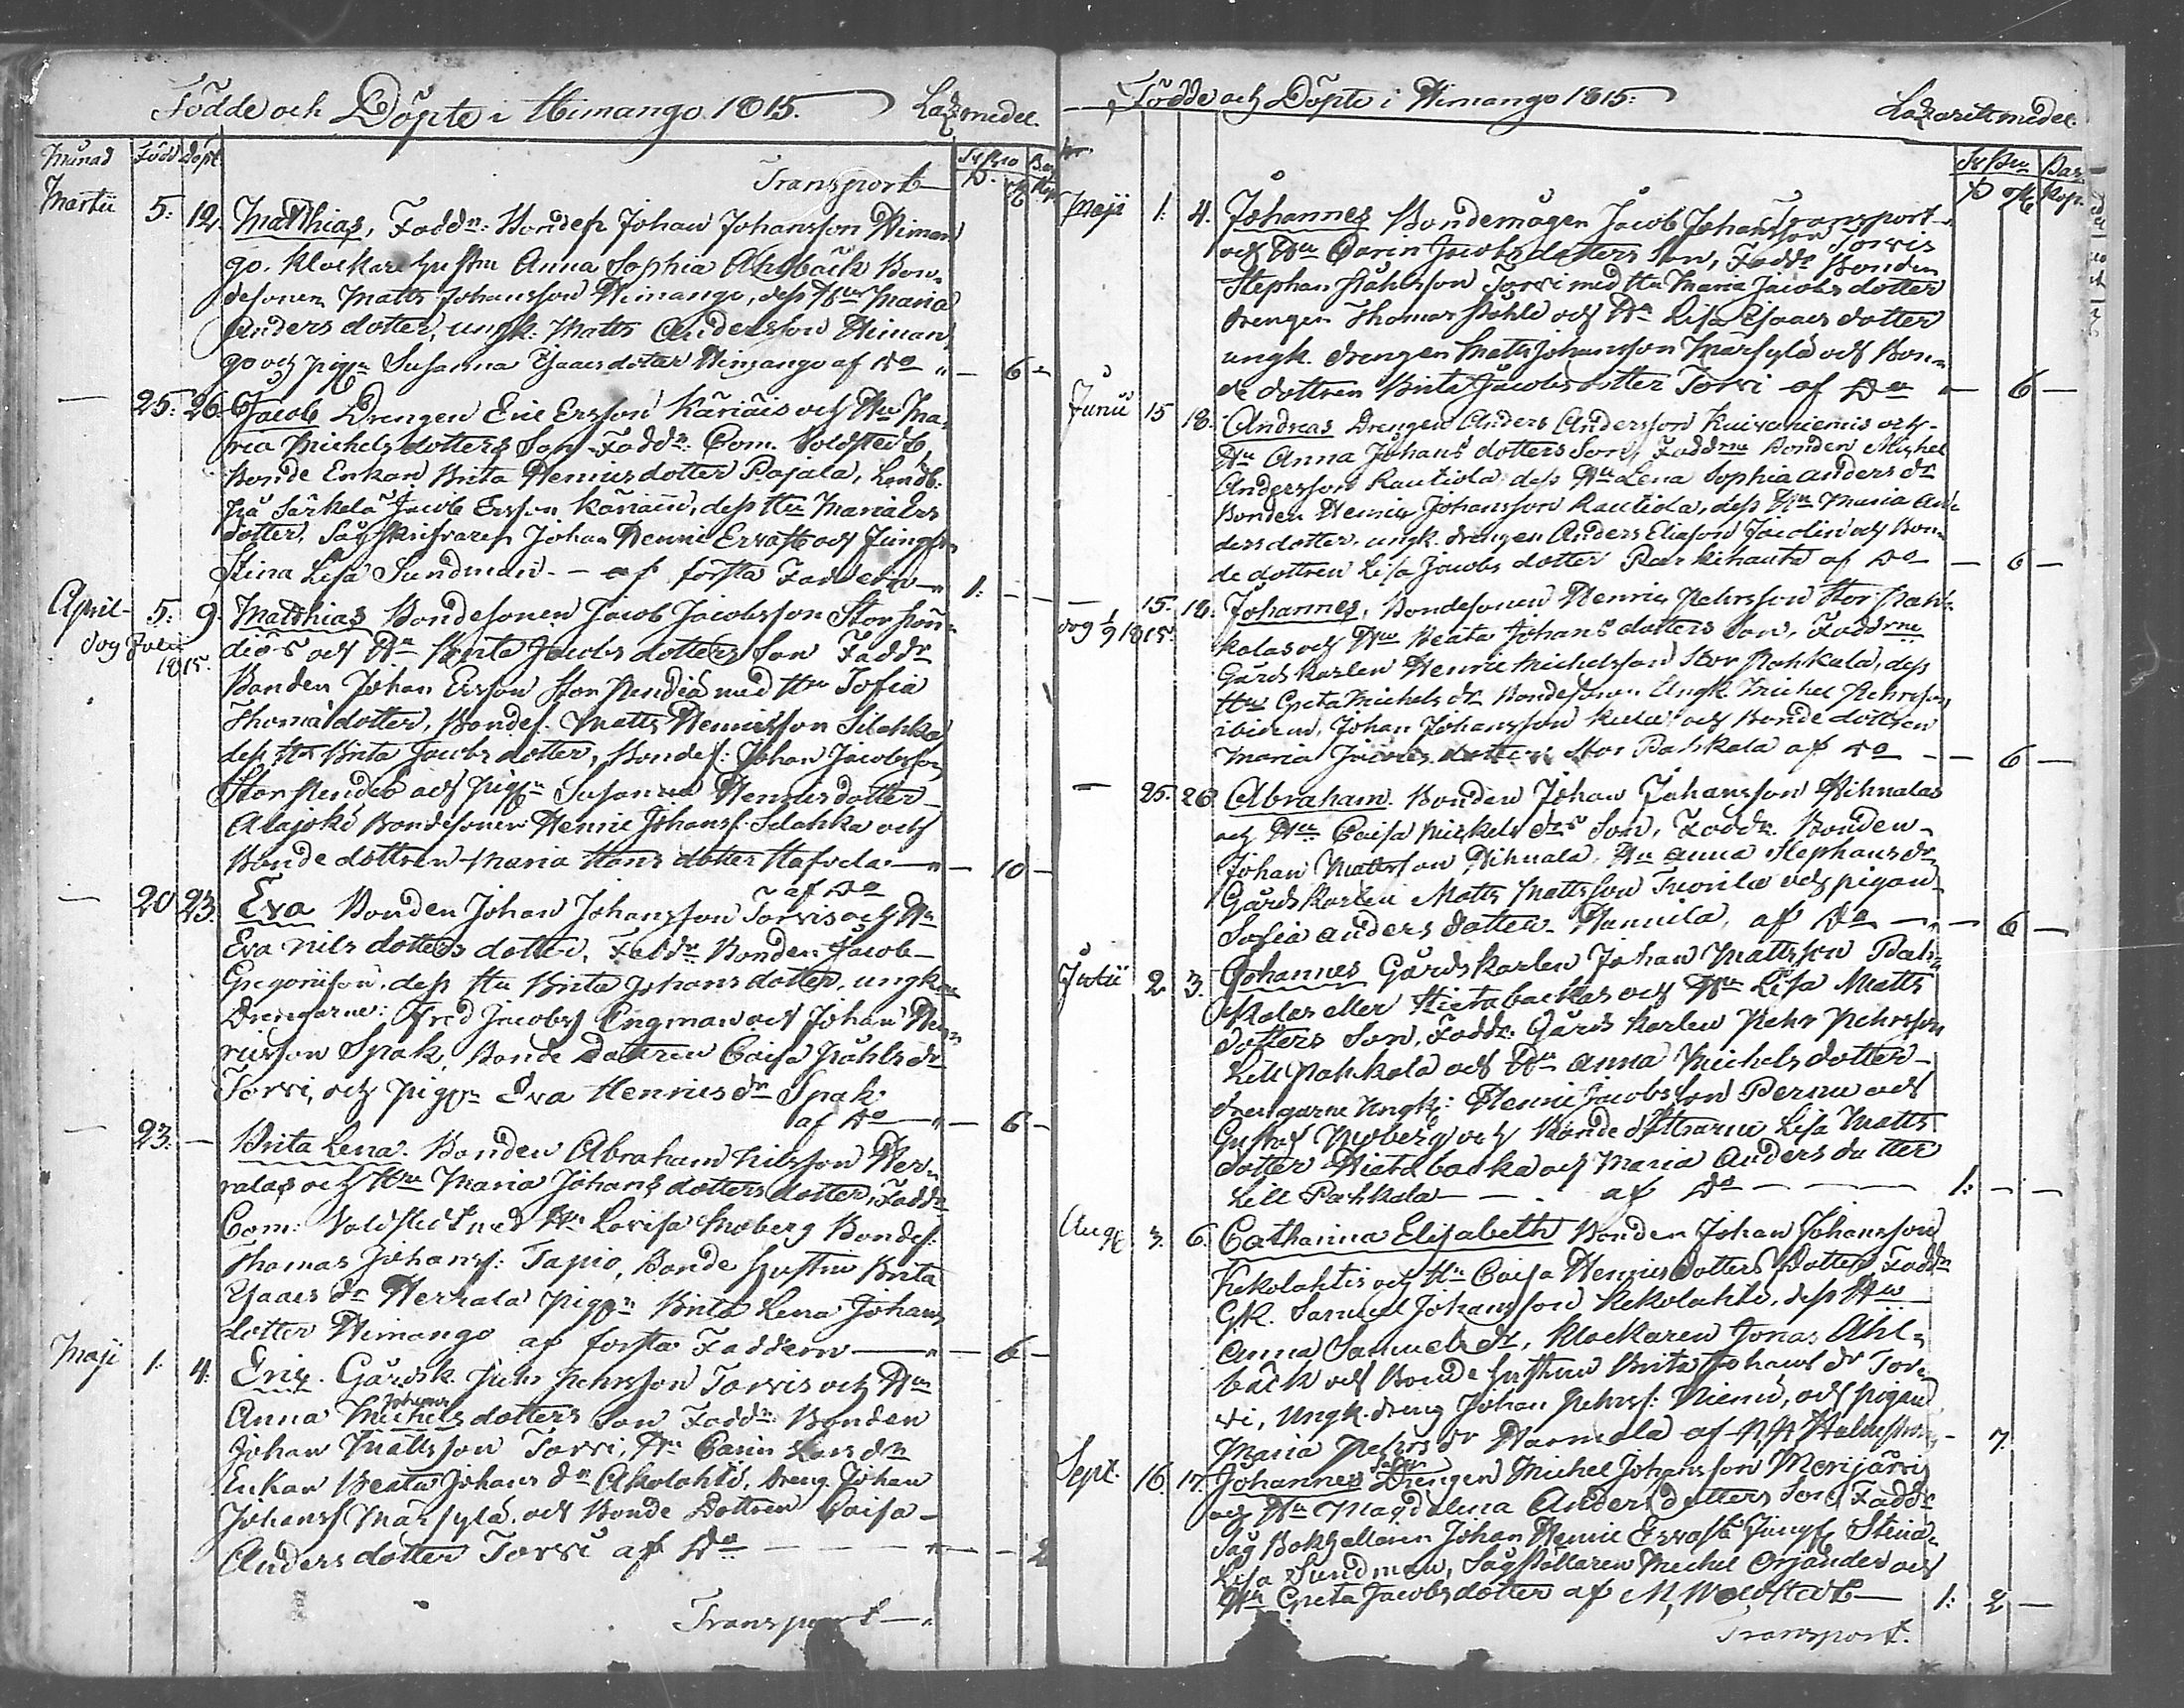 Födde och Döpte i Himango 1815. Laz medel.
Månad Född Döpt
Transport
Martii 5. 12. Matthias, Faddr: Bondes. Johan Johansson Himan
go. Klockare hustru Anna Sophia Ahlbäck Bon-
desonen Matts Johansson Himango, dess Hu Maria
Anders dotter, ungk. Matts Andersson Himan
go och pigan Susanna Isaacs dotter Himango af Do 6 -
— 25. 26. Jacob Drengen Eric Ersson Käriäis och Hu Ma-
ria Michels dotters Son. Faddr: Com. Woldstedt,
Bonde Enkan Brita Henricsdotter Pajala, Landb.
på Särkelä Jacob Ersson Käriäin, dess Hu Maria Ers
dotter, Johan Henric Ervast och Jungfr
Stina Lisa Sundman. — af första Faddern — 1: - -
April 5. 9. Matthias Bondesonen Jacob Jacobsson Stor
dog Julii 1815. och Hu Brita Jacobs dotters Son Faddr
Bonden Johan Ersson Stor med Hu Sofia
Thomä dotter, Bondes. Matts Henricsson Silahka
dess Hu Brita Jacobs dotter, Bondes: Johan Jacobsson
Stor och pign Susanna Henricsdotter
Alajoki Bondesonen Henric Johanss. Silahka och
Bonde dottren Maria Hans dotter — 10 -
af Do
— 20 23. Eva Bonden Johan Johansson Torvis och Hu
Eva Nils dotters dotter, Faddr Bonden Jacob
Gregorisson, dess Hu Brita Johans dotter, ungk
Drengarne: Fred Jacobss Engman och Johan Hen-
ricsson Spak, Bonde Dottren Caisa Påhls dr
Torvi, och pign Eva Henrics dr Spak
af Do — 6 -
— 23. — Brita Lena. Bonden Abraham Nilsson Her-
ralas och Hu Maria Johans dotters dotter, Faddr
Com: Woldstedt med Hu Lovisa Moberg Bondes.
Thomas Johanss: Tapio, Bonde Hustrun Brita
Isaacs dr Herrala pign Brita Lena Johans
dotter Himango af första Faddern — 6 -
Maji 1. 4. Eric. Gårdsk. Pehr Pehrsson Torvis och Hu
Johans
Anna Michels dotters Son Faddr Bonden
Johan Mattsson Torvi, Hu Carin Lars dr
Enkan Beata Johans dr Aholahti, Dreng Johan
Johanss Märsylä, och Bonde Dottren Caisa
Anders dotter Torvi af Do — 2
Transport
Födde och Döpte i Himango 1815: Lazaretts medel.
Transport
Maji 1. 4. Johannes Bondemågen Jacob Johansson Torvis
och Hu Carin Jacobs dotters Son, Faddr Bonden
Stephan Påhlsson Torvi med Hu Maria Jacobs dotter
drengen Thomas Påhls och Hu Lisa Isaacs dotter
ungk. drengen Matts Johansson Märsylä och Bon-
de dottren Brita Jacobs dotter Torvi af Do — 6 —
Junii 15 18. Andreas Drengen Anders Andersson Kuivaniemis och
Hu Anna Johans dotters Son, Faddrne Bonden Michel
Andersson Rautiola dess Hu Lena Sophia Anders dr
Bonden Henric Johansson Rautiola, dess Hu Maria An-
ders dotter, ungk. drengen Anders Eliasson Jacolin och Bon-
de dottren Lisa Jacobs dotter af Do — 6 —
— 15. 18. Johannes, Bondesonen Henric Pehrsson Stor Pah-
dog 1/9 1815. kalas och Hu Beata Johans dotters Son, Faddrne
Gårds karlen Henric Michelsson Stor Pahkala, dess
Hu Greta Michels dr Bondesonen Ungk Michel Pehrsson
ibidem, Johan Johansson och Bonde dottren
Maria Jacobs dotter Stor Pahkala af Do — 6 —
— 25. 26. Abraham. Bonden Johan Johansson Hihnalas
och Hu Caisa Michels drs Son, Faddr. Bonden
Johan Mattsson Hihnala, Hu Anna Stephans dr
Gårds karlen Matts Mattsson Tuorila och pigan
Sofia Anders dotter Hannila, af Do — 6 —
Julii 2 3. Johannes Gårdskarlen Johan Mattsson Pah-
kalas eller Hietabackas och Hu Lisa Matts
dotters Son, Faddr: Gårds karlen Pehr Pehrsson
Lill Pahkala och Hu Anna Michels dotter
drengarne Ungk: Henric Jacobsson Pernu och
Gustaf Nyberg och Bonde döttrarne Lisa Matts
dotter Hietabacka och Maria Anders dotter
Lill Pahkala — af Do — 1: — —
Aug 3. 6. Catharina Elisabeth Bonden Johan Johansson
Kekolahtis och Hu Caisa Henricsdotters Dotter Faddr
Gk. Samuel Johansson Kekolahti, dess Hu
Anna Samuels dr, Klockaren Jonas Ahl-
bäck och Bonde hustrun Brita Johans dr Tor-
vi, Ungk. dreng Johan Pehrss: Niemi, och pigan
Maria Pehrs dr Harmala af — 7.
Sept. 16. 17. Johannes Drengen Michel Johansson Merijärvi
och Hu Magdalena Anders dotters Son, Faddr
Såg Bokhållaren Johan Henric Ervast Jungf. Stina
Lisa Sundman, Sågställaren Michel Orjander och
Hu Greta Jacobs dotter af M, Woldstedt — 1: 2 —
Transport.